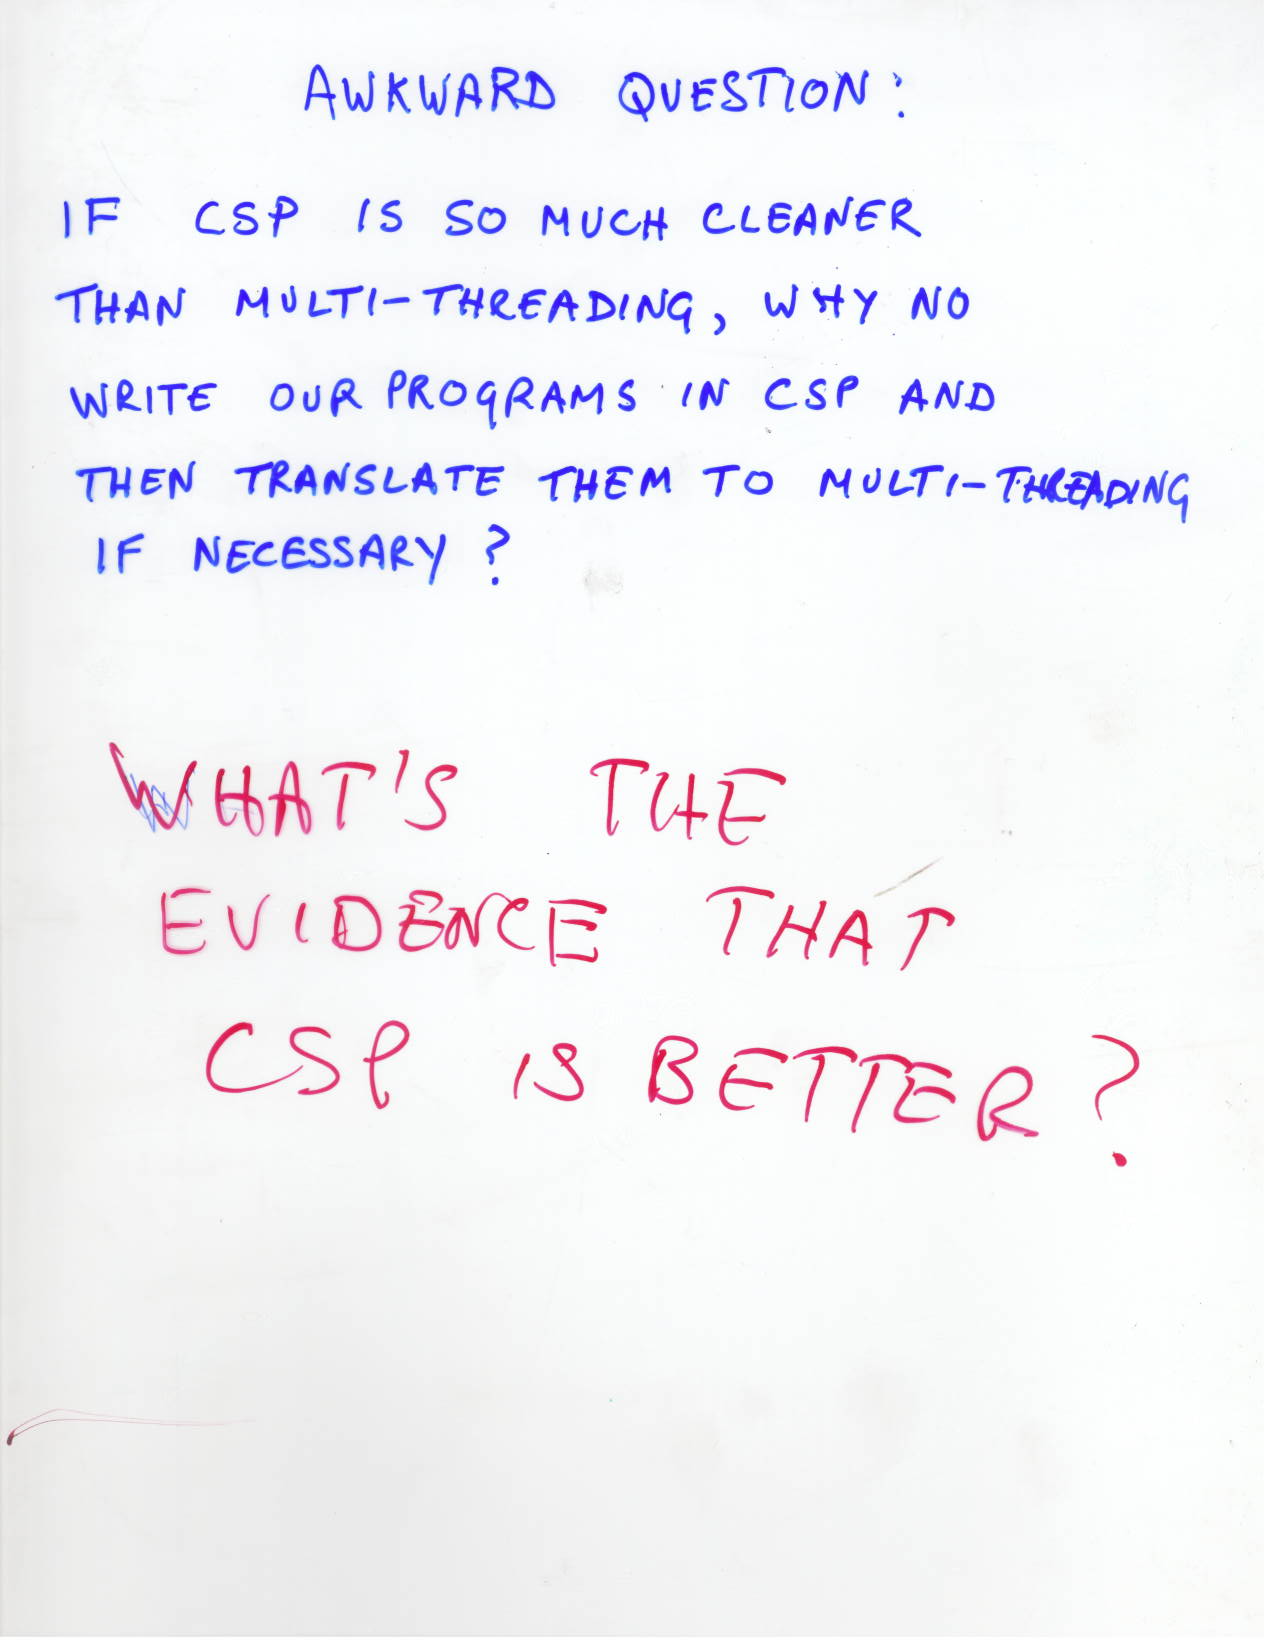 AWKWARD QUESTION:
IF CSP IS SO MUCH CLEANER
THAN MULTI-THREADING, WHY NO
WRITE OUR PROGRAMS IN CSP AND
THEN TRANSLATE THEM TO MULTI-THREADING
IF NECESSARY?
WHAT'S THE
EVIDENCE THAT
CSP IS BETTER?